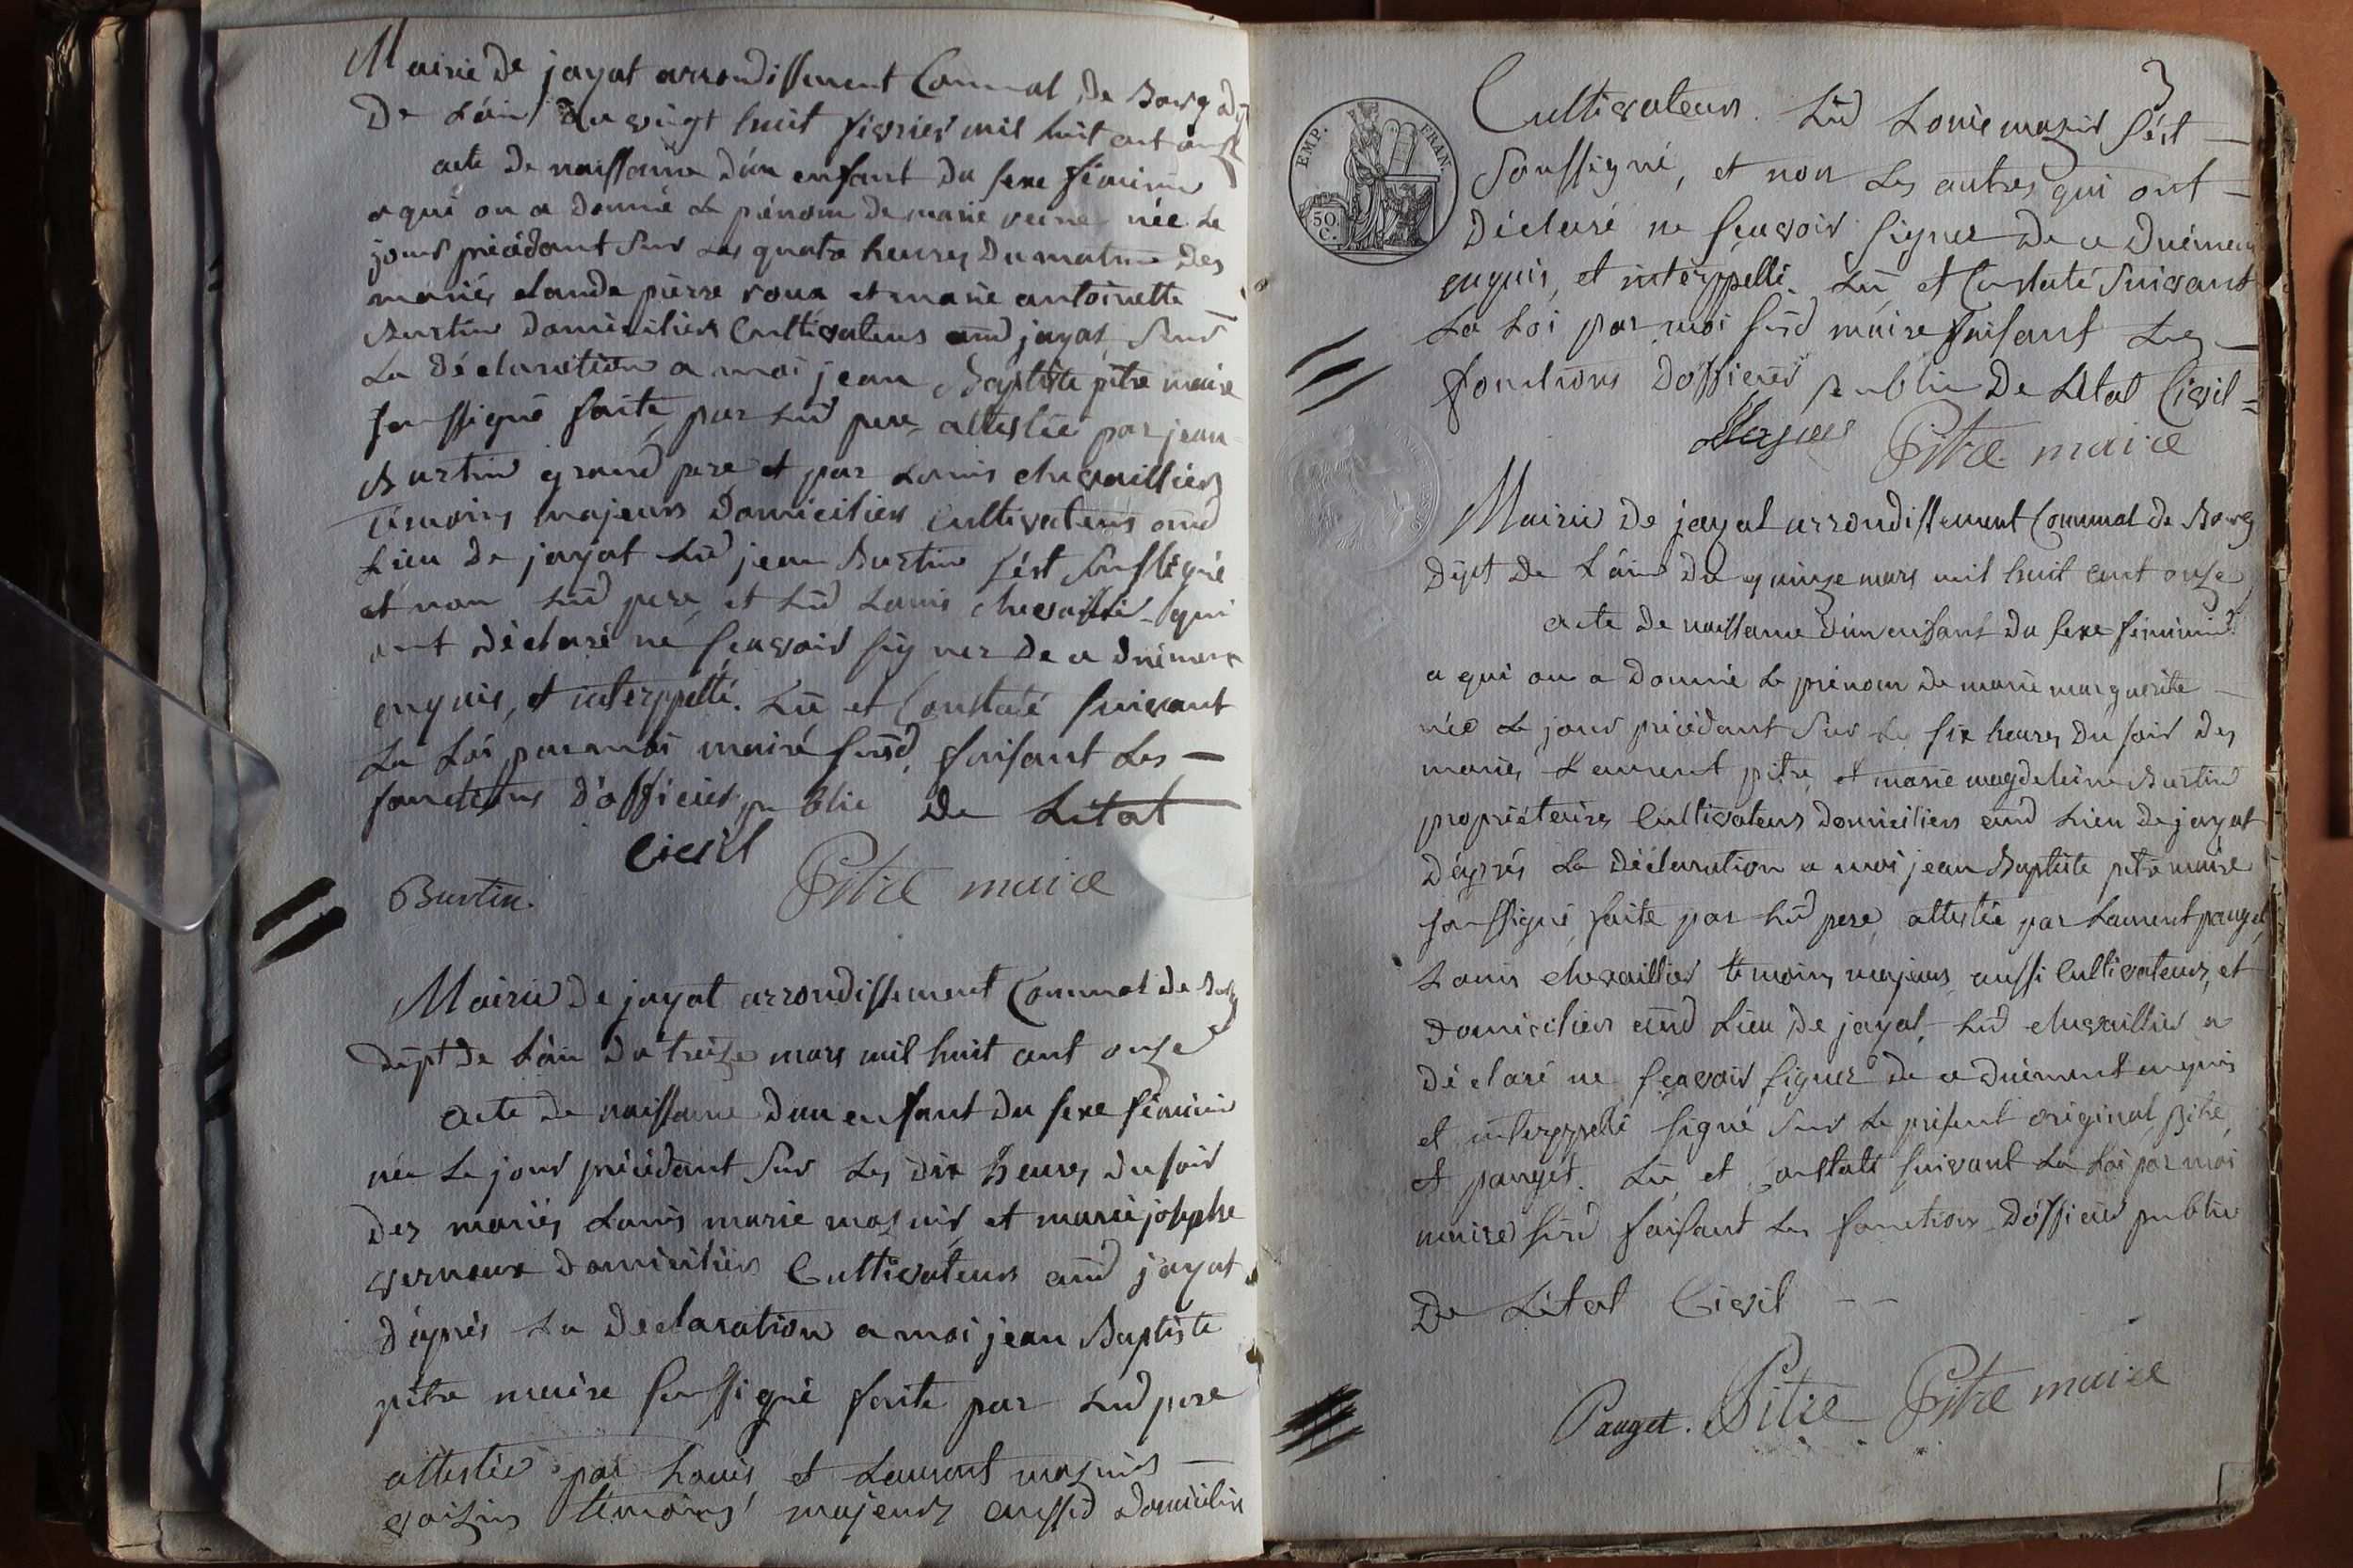 Mairie de jayat arrondissement Communal de Bourg dpt
De L'ain du vingt huit fievrier mil huit cent onze
acte De naissance d'un enfant du sexe féminin
a qui on a donné Le prénom de marie reine née Le
jour précédant Sur Les quatre heures Du matin Des
mariés claude pierre roux et marie antoinette
Burtin domiciliés Cultivateurs aud jayat Sur
La Déclaration a moi jean Baptiste pitre maire
soussigné faite par Lud pere, attestée par jean
Burtin grand pere et par Louis chevaillier
témoins majeurs Domiciliés Cultivateurs aud
Lieu De jayat Lud jean Burtin s'ést soussigné
et non Lud pere, et Lud Louis chevaillier qui
ont déclaré ne sçavoir signer De ce duement
enquis, et interppellé. Lu et Constaté suivant
La Loi par moi maire susd. faisant Les
fonctions d'officier public De Létat
Civil
Burtin. Pitre maire
Mairie De jayat arrondissement Communal de Bourg
dépt De L'ain Du treize mars mil huit cent onze
acte De naissance d'un enfant du sexe féminin
née Le jour précédant Sur Les Dix heures du soir
Des mariés Louis marie mazuir et marie josephe
vernoux domiciliés Cultivateurs aud jayat
d'aprés La Declaration a moi jean Baptiste
pitre maire soussigné faite par Lud pere
attestée par Louis, et Laurent mazuir
voisins témoins majeurs aussid Domiciliés
3
Cultivateurs. Lud Louis mazuir s'ést
EMP. FRAN.
50 C.
Soussigné, et non Les autres qui ont
Déclaré ne sçavoir signer De ce Duement
enquis, et interppellé. Lu et Constaté Suivant
La Loi par moi susd maire faisant Les
fonctions D'officier public De Létat Civil
Pitre maire
Mairie De jayat arrondissement Communal de Bourg
dépt De L'ain Du quinze mars mil huit cent onze
acte De naissance d'un enfant Du sexe féminin
a qui on a Donné Le prénom De marie marguerite
née Le jour précédant Sur Les six heures Du soir Des
mariés Laurent pitre, et marie magdeleine Burtin
propriétaires Cultivateurs domiciliés aud Lieu De jayat
D'aprés La Déclaration a moi jean Baptiste pitre maire
soussigné, faite par Lud pere, attestée par Laurent pauget,
Louis chevaillier témoins majeurs aussi Cultivateurs, et
Domiciliés aud Lieu De jayat, Lud chevaillier a
Déclaré ne sçavoir signer De ce Duement enquis
et interppellé signé sur Le présent original pitre,
et pauget. Lu et Constaté suivant La Loi par moi
maire susd faisant Les fonctions D'officier public
De Létat Civil
Pauget. Pitre Pitre maire